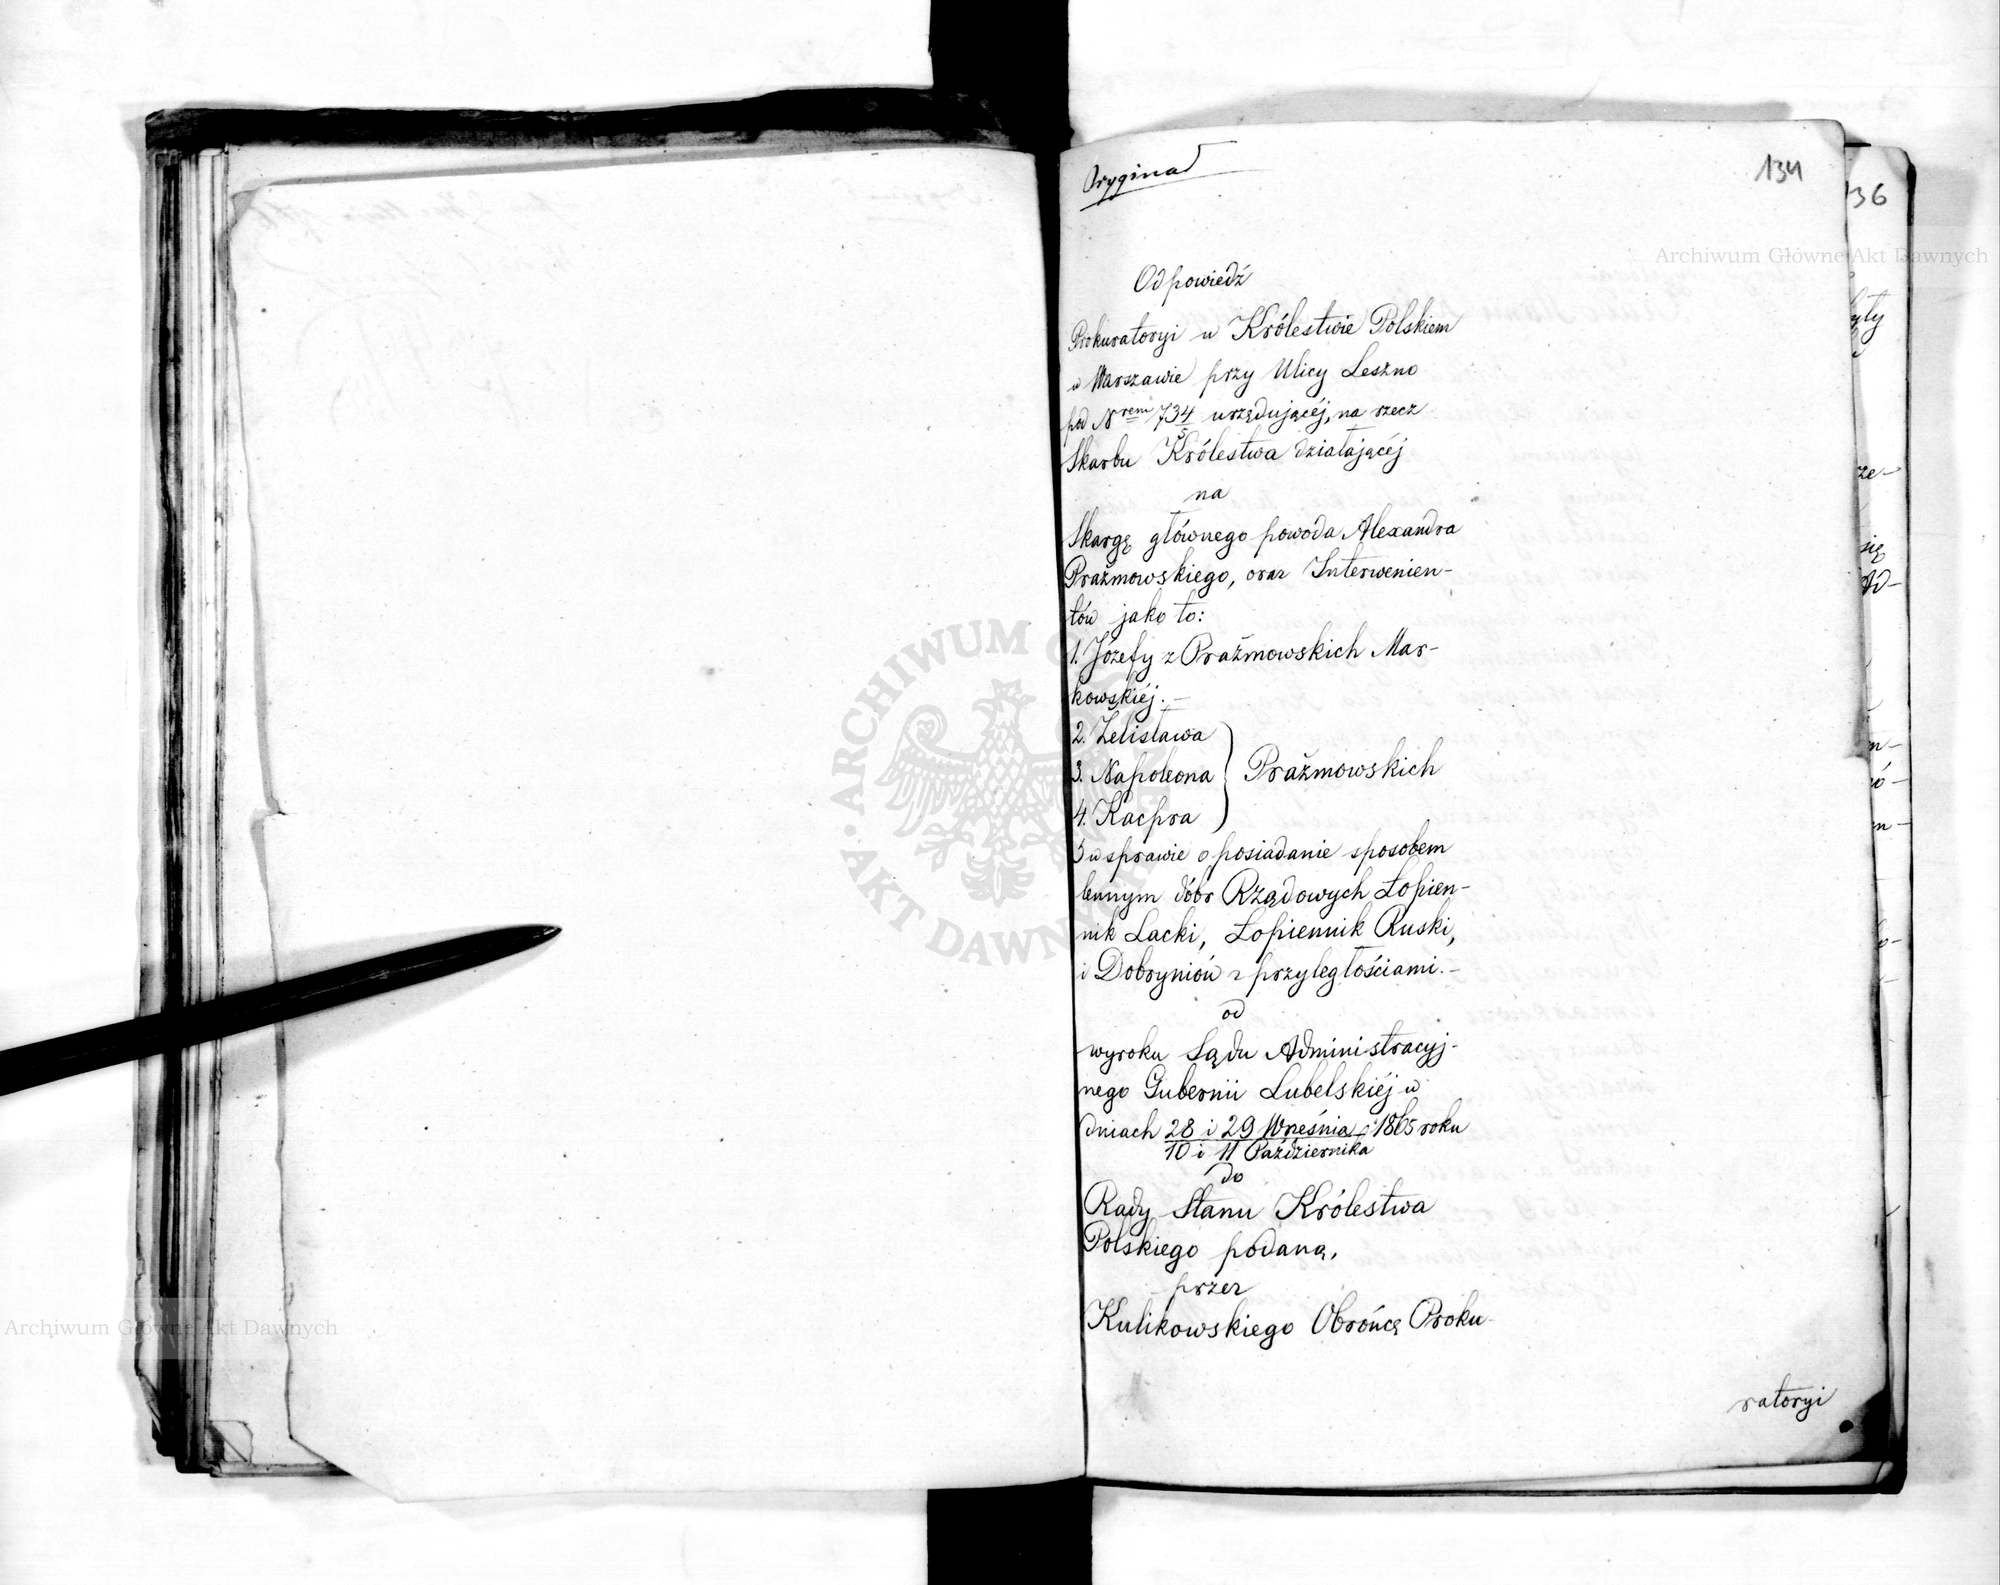 Oryginał
134
36
Odpowiedź
Prokuratoryi w Królestwie Polskiem
w Warszawie przy Ulicy Leszno
pod Nrem 734/5 urzędującéj, na rzecz
Skarbu Królestwa działającéj
na
Skargę głównego powoda Alexandra
Prażmowskiego, oraz Interwenien-
tów jako to:
1. Józefy z Prażmowskich Mar-
kowskiéj. –
2. Żelisława
3. Napoleona } Prażmowskich
4. Kacpra
w sprawie o posiadanie sposobem
lennym dóbr Rządowych Łopien-
nik Lacki, Łopiennik Ruski,
i Dobryniów z przyległościami. –
od
wyroku Sądu Administracyj-
nego Gubernii Lubelskiéj w
dniach 28 i 29 Września 1865 roku
10 i 11 Października
do
Rady Stanu Królestwa
Polskiego podaną,
przez
Kulikowskiego Obrońcę Proku-
ratoryi
Archiwum Główne Akt Dawnych
Archiwum Główne Akt Dawnych